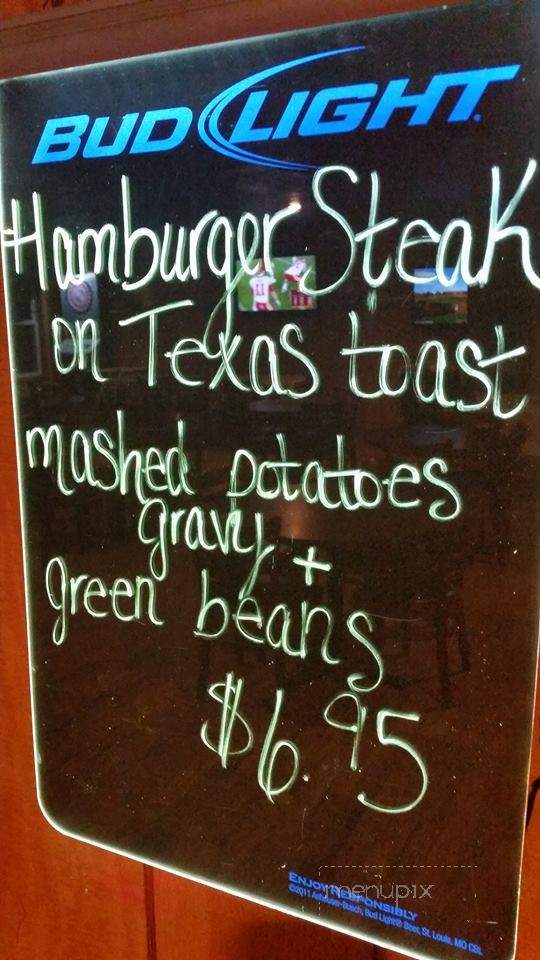 BUD LIGHT
Hamburger Steak
on Texas toast
mashed potatoes
gravy +
green beans
$6.95
ENJOY RESPONSIBLY
©2011 Anheuser-Busch, Bud Light® Beer, St. Louis, MO
menupix